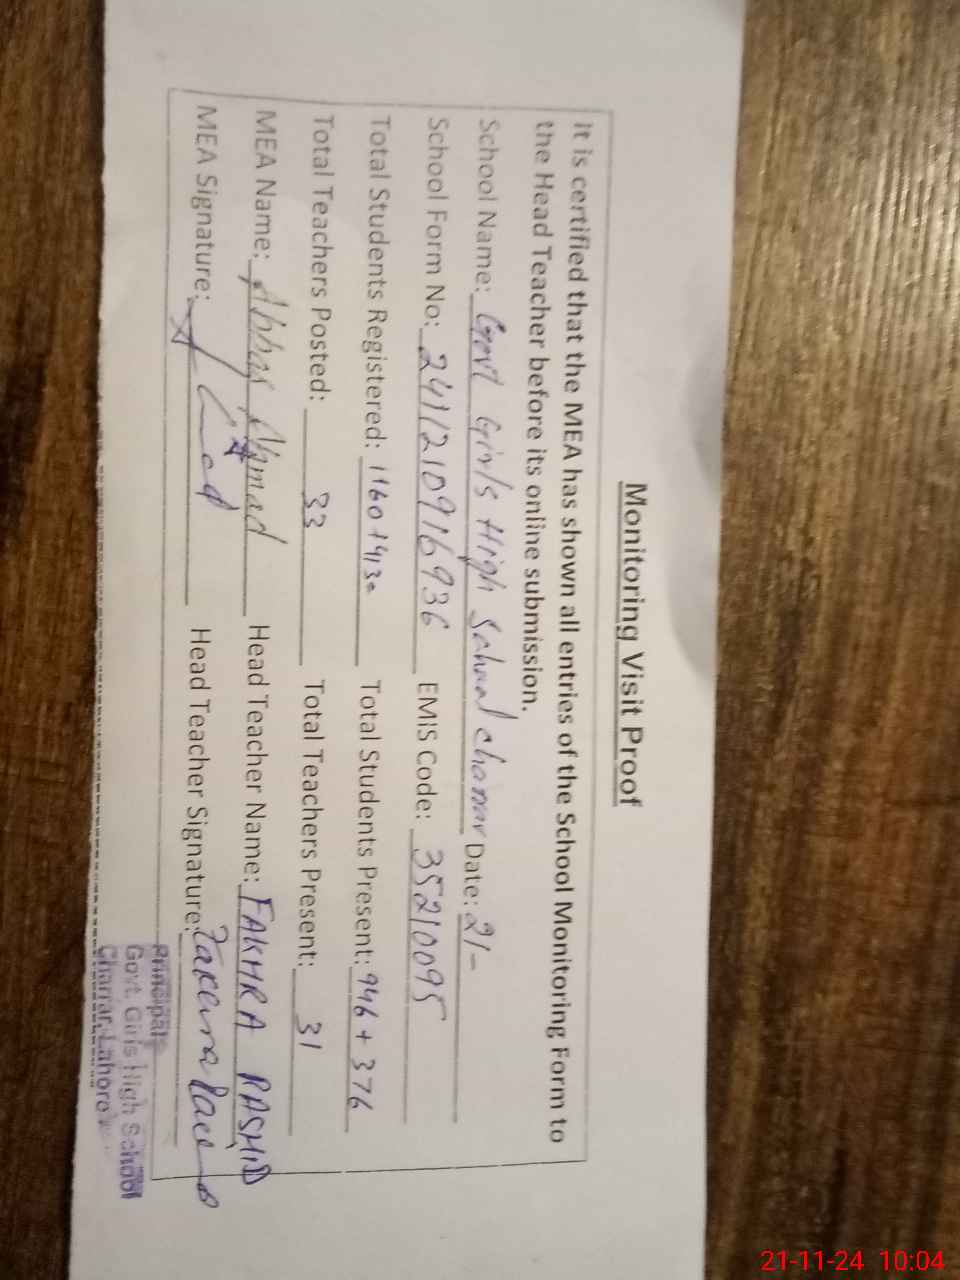 Monitoring Visit Proof
It is certified that the MEA has shown all entries of the School Monitoring Form to
the Head Teacher before its online submission.
School Name: Govt Girls High School charrar Date: 21-
School Form No: 2411210916936 EMIS Code: 35210095
Total Students Registered: 1160+413 Total Students Present: 946 + 376
Total Teachers Posted: 33 Total Teachers Present: 31
MEA Name: Abbas Ahmad Head Teacher Name: FAKHRA RASHID
MEA Signature: Head Teacher Signature:
Principal
Govt. Girls High School
Charrar, Lahore
21-11-24 10:04